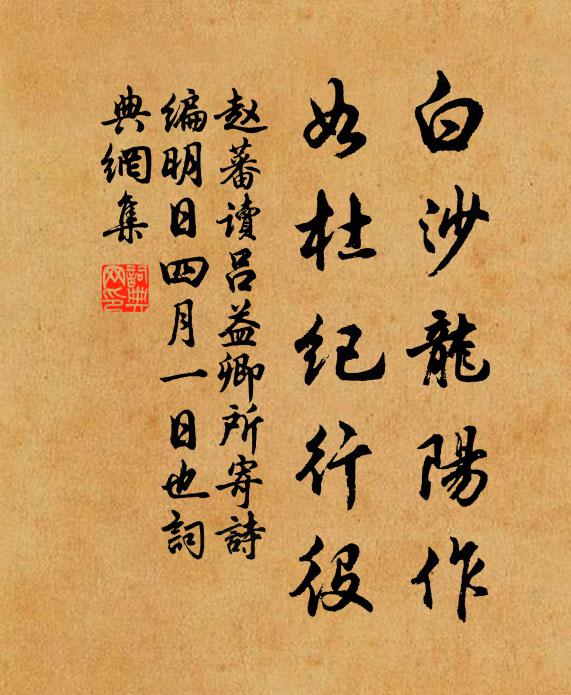 白沙龍陽作
如杜紀行役
赵蕃讀呂益卿所寄詩
编明日四月一日也詞
典網集
詞典
网印